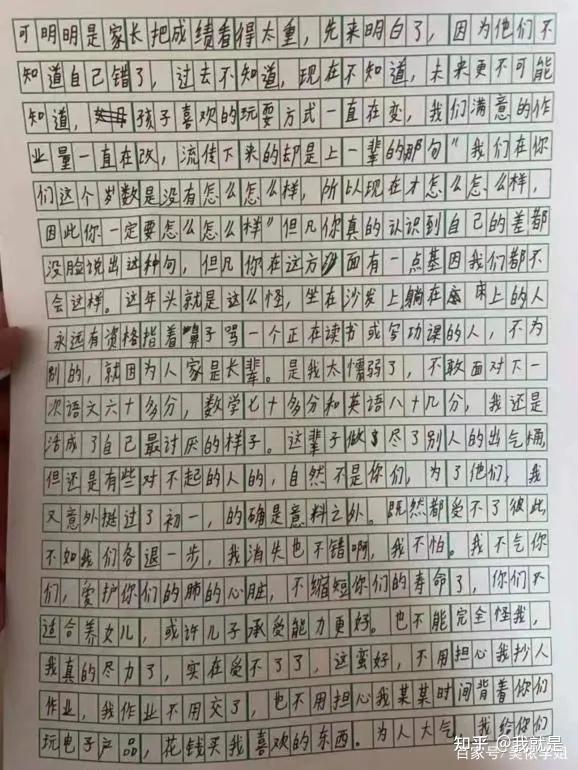 可明明是家长把成绩看得太重，先来明白了，因为他们不
知道自己错了，过去不知道，现在不知道，未来更不可能
知道，孩子喜欢的玩耍方式一直在变，我们满意的作
业量一直在改，流传下来的却是上一辈的那句"我们在你
们这个岁数是没有怎么怎么样，所以现在才怎么怎么样，
因此你一定要怎么怎么样"但凡你真的认识到自己的差都
没脸说出这种句，但凡你在这方面有一点基因我们都不
会这样。这年头就是这么怪，坐在沙发上躺在床上的人
永远有资格指着鼻子骂一个正在读书或写功课的人，不为
别的，就因为人家是长辈。是我太懦弱了，不敢面对下一
次语文六十多分，数学七十多分和英语八十几分，我还是
活成了自己最讨厌的样子。这辈子做尽了别人的出气桶，
但还是有些对不起的人的，自然不是你们，为了他们，我
又意外挺过了初一，的确是意料之外。既然都受不了彼此，
不如我们各退一步，我消失也不错啊，我不怕。我不气你
们，爱护你们的肺的心脏，不缩短你们的寿命了，你们不
适合养女儿，或许儿子承受能力更好。也不能完全怪我，
我真的尽力了，实在受不了了，这蛮好，不用担心我抄人
作业，我作业不用交了，也不用担心我某某时间背着你们
玩电子产品，花钱买我喜欢的东西。为人大气，我给你们
知乎 @我就是
百家号/吴依学姐